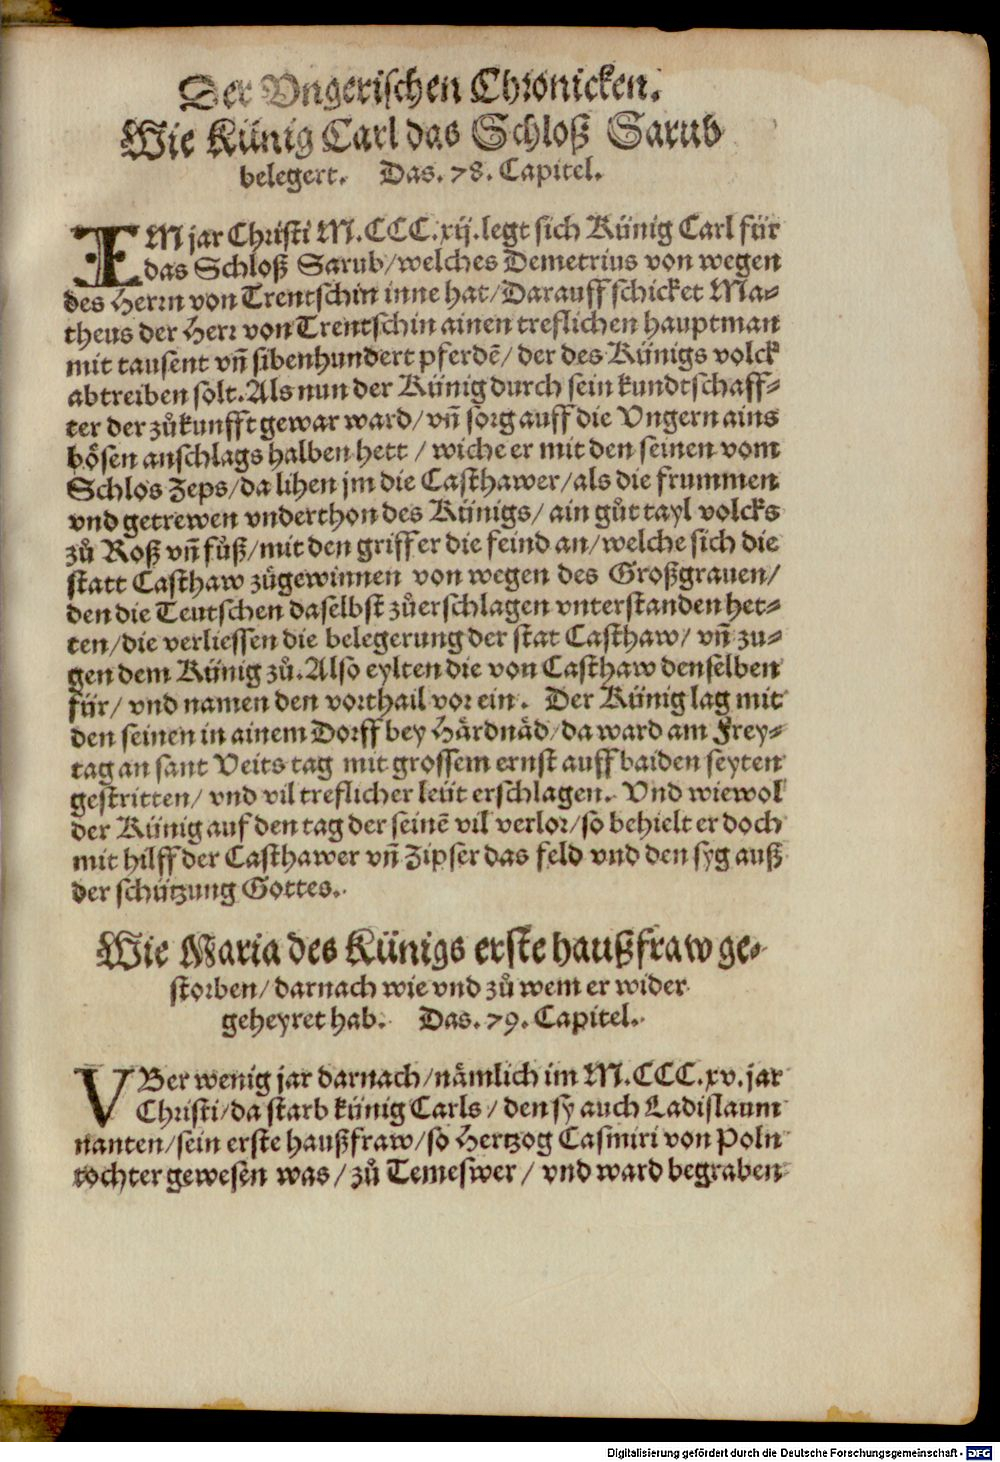 Der Vngerischen Chronicken.
Wie Künig Carl das Schloß Sarub
belegert. Das. 78. Capitel.
IM jar Christi M.CCC.xij. legt sich Künig Carl für
das Schloß Sarub/welches Demetrius von wegen
des Herrn von Trentschin inne hat/Darauff schicket Ma-
theus der Herr von Trentschin ainen treflichen hauptman
mit tausent vñ sibenhundert pferdē/ der des Künigs volck
abtreiben solt. Als nun der Künig durch sein kundtschaff-
ter der zůkunfft gewar ward/ vñ sorg auff die Vngern ains
bösen anschlags halben hett / wiche er mit den seinen vom
Schlos Zeps/da lihen jm die Casthawer/als die frummen
vnd getrewen vnderthon des Künigs/ ain gůt tayl volcks
zů Roß vñ fůß/mit den griff er die feind an/welche sich die
statt Casthaw zůgewinnen von wegen des Großgrauen/
den die Teutschen daselbst zůerschlagen vnterstanden het-
ten/die verliessen die belegerung der stat Casthaw/ vñ zu-
gen dem Künig zů. Also eylten die von Casthaw denselben
für/ vnd namen den vorthail vor ein. Der Künig lag mit
den seinen in ainem Dorff bey Härdnäd/da ward am Frey-
tag an sant Veits tag mit grossem ernst auff baiden seyten
gestritten/ vnd vil treflicher leüt erschlagen. Vnd wiewol
der Künig auf den tag der seinē vil verlor/so behielt er doch
mit hilff der Casthawer vñ Zipser das feld vnd den syg auß
der schützung Gottes.
Wie Maria des Künigs erste haußfraw ge-
storben/darnach wie vnd zů wem er wider
geheyret hab. Das. 79. Capitel.
VBer wenig jar darnach/nämlich im M.CCC.xv. jar
Christi/da starb künig Carls / den sy auch Ladislaum
nanten/sein erste haußfraw/so Hertzog Casmiri von Poln
tochter gewesen was/ zů Temeswer / vnd ward begraben
Digitalisierung gefördert durch die Deutsche Forschungsgemeinschaft - DFG